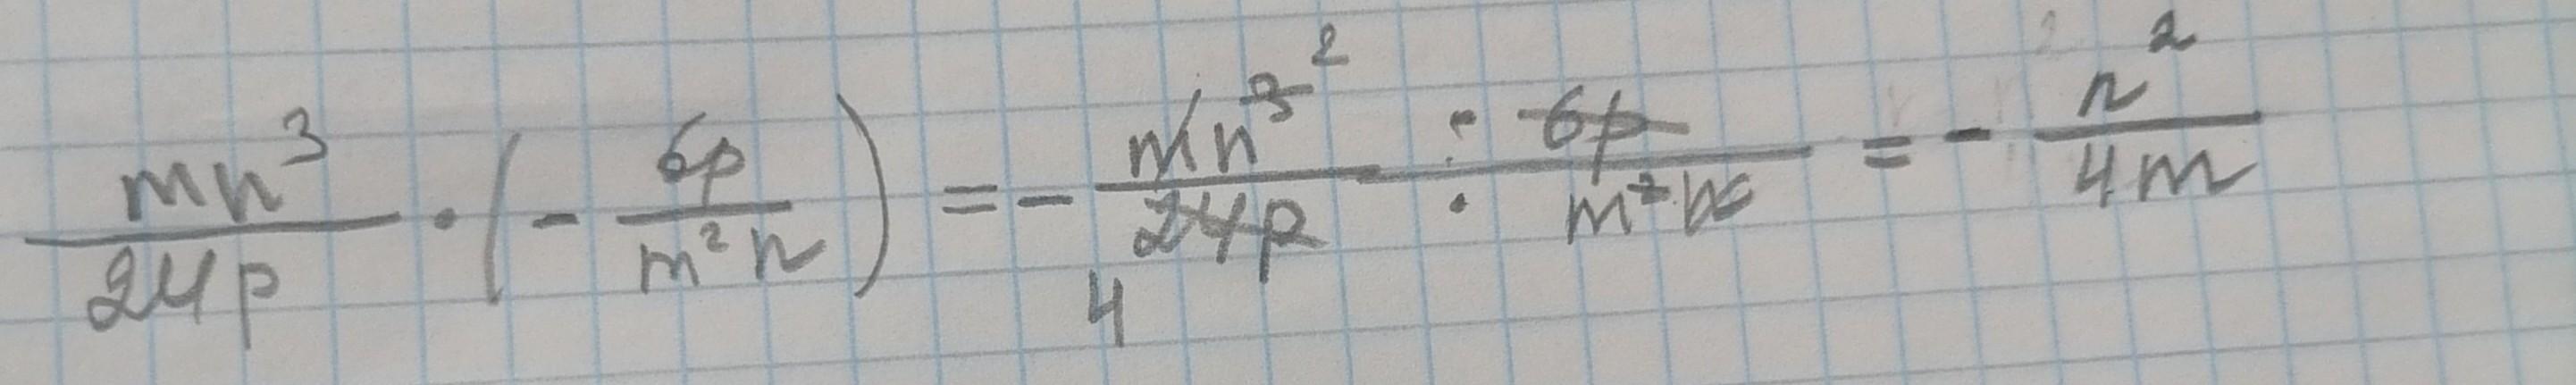 mn³/24p · (- 6p/m²n) = - mn³ ²/24p 4 : · 6p/m²n = - n²/4m